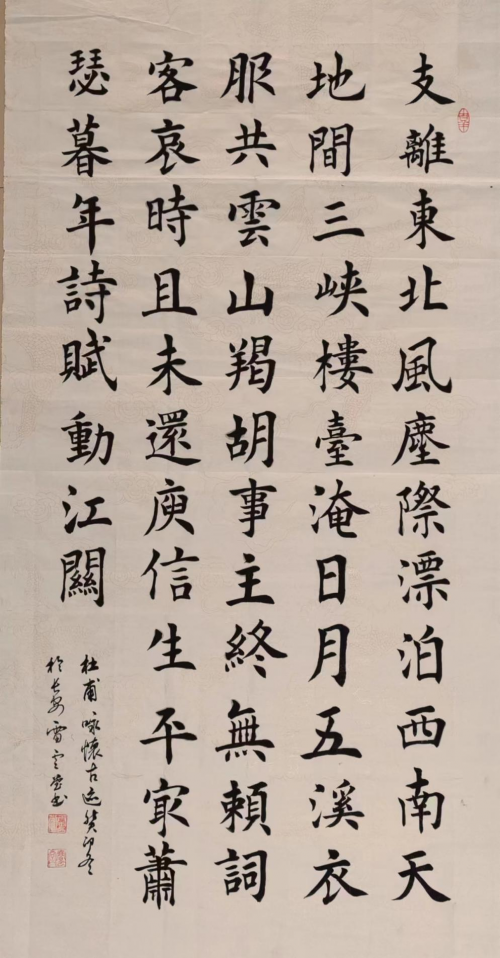 支離東北風塵際漂泊西南天
地間三峽樓臺淹日月五溪衣
服共雲山羯胡事主終無賴詞
客哀時且未還庾信生平冣蕭
瑟暮年詩賦動江關
杜甫咏懷古迹癸卯冬
於長安雪